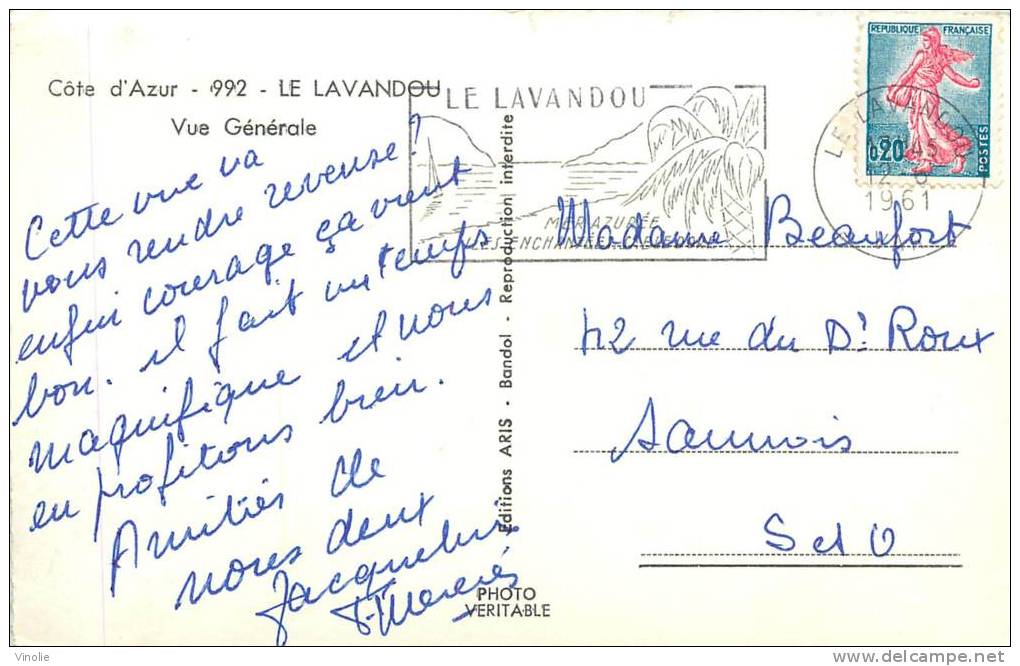 Côte d'Azur - 992 - LE LAVANDOU
Vue Générale
Cette vue va
vous rendre reveuse?
enfin courage ça vient
bon. il fait un temps
magnifique et nous
en profitons bien.
Amitiés de
nous deux
Jacqueline
Editions ARIS - Bandol - Reproduction interdite
PHOTO
VERITABLE
LE LAVANDOU
MER AZURÉE
ILES ENCHANTÉES
REPUBLIQUE FRANÇAISE
0,20
POSTES
LE LAVANDOU
1961
Madame Beaufort
42 rue du Dr Roux
Sannois
S et O
Vinolie
www.delcampe.net